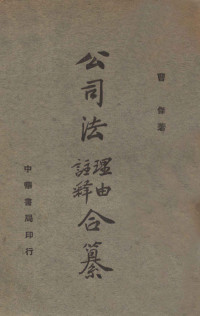 公司法
理由
註釋
合纂
中華書局印行